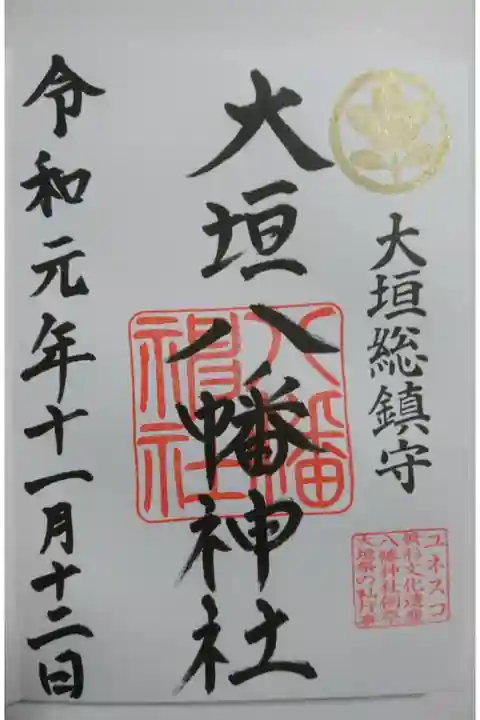 大垣総鎮守
ユネスコ
無形文化遺産
八幡神社例祭
大垣祭の軕行事
大垣八幡神社
八幡
神社
令和元年十一月十二日